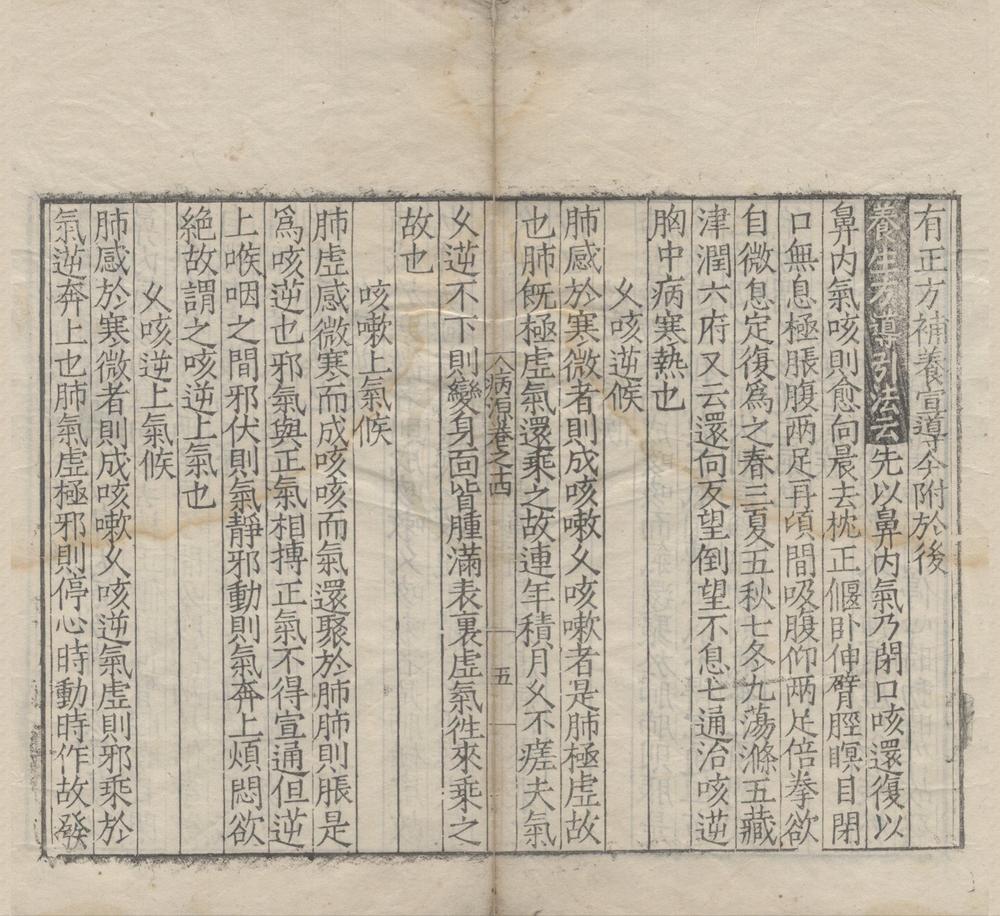 有正方補養宣導今附於後
養生方導引法云先以鼻內氣乃閉口咳還復以
鼻內氣咳則愈向晨去枕正偃卧伸臂脛瞑目閉
口無息極脹腹两足再頃間吸腹仰两足倍拳欲
自微息定復爲之春三夏五秋七冬九蕩滌五藏
津潤六府又云還向反望倒望不息七通治咳逆
胸中病寒熱也
乆咳逆候
肺感於寒微者則成咳嗽乆咳嗽者是肺極虛故
也肺旣極虛氣還乘之故連年積月乆不瘥夫氣
病源卷之十四
五
乆逆不下則變身面皆腫滿表裏虛氣徃來乘之
故也
咳嗽上氣候
肺虛感微寒而成咳咳而氣還聚於肺肺則脹是
爲咳逆也邪氣與正氣相搏正氣不得宣通但逆
上喉咽之間邪伏則氣靜邪動則氣奔上煩悶欲
絶故謂之咳逆上氣也
乆咳逆上氣候
肺感於寒微者則成咳嗽乆咳逆氣虛則邪乘於
氣逆奔上也肺氣虛極邪則停心時動時作故發